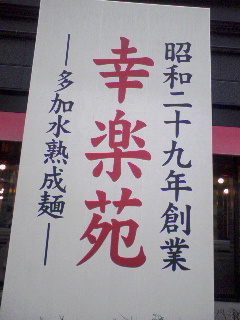 昭和二十九年創業
幸楽苑
―多加水熟成麺―